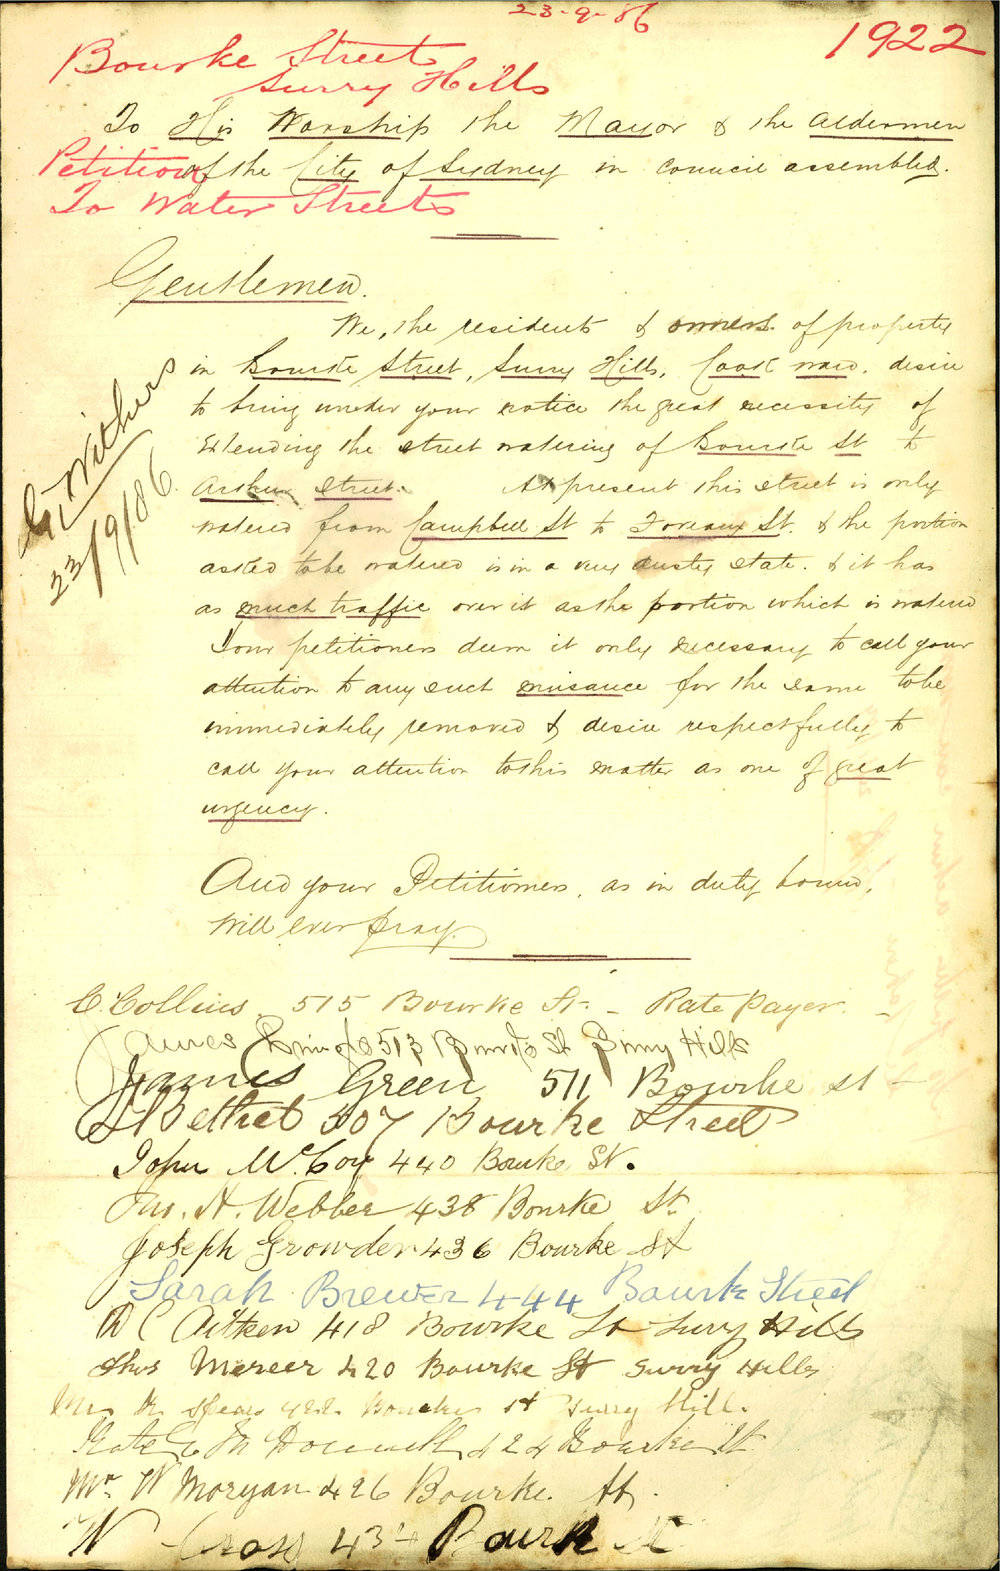 23-9-86
1922
Bourke Street
Surry Hills
To His Worship the Mayor & the Aldermen
Petition of the City of Sydney in council assembled.
To Water Streets
Gentlemen.
We, the residents & owners of property
in Bourke Street, Surry Hills, Cook ward, desire
to bring under your notice the great necessity of
Extending the street watering of Bourke St to
Arthur Street. At present this street is only
watered from Campbell St to Foveaux St. & the portion
asked to be watered is in a very dusty state. & it has
as much traffic over it as the portion which is watered
Your petitioners deem it only necessary to call your
attention to any such nuisance for the same to be
immediately removed & desire respectfully to
call your attention to this matter as one of great
urgency.
Withers
23/9/86
And your Petitioners, as in duty bound,
Will ever pray.
C. Collins. 515 Bourke St - Rate Payer.
James 513 Bourke St Surry Hills
James Green 511 Bourke St
507 Bourke Street
John McCoy 440 Bourke St.
Jno. H. Webber 438 Bourke St
Joseph Growden 436 Bourke St
Sarah Brewer 444 Bourk Street
D C Aitken 418 Bourke St Surry Hills
Thos Mercer 420 Bourke St Surry Hills
Mrs Spears 422 Bourke St Surry Hill.
424 Bourke St
Mr. W Morgan 426 Bourke St.
W Cross 434 Bourk St